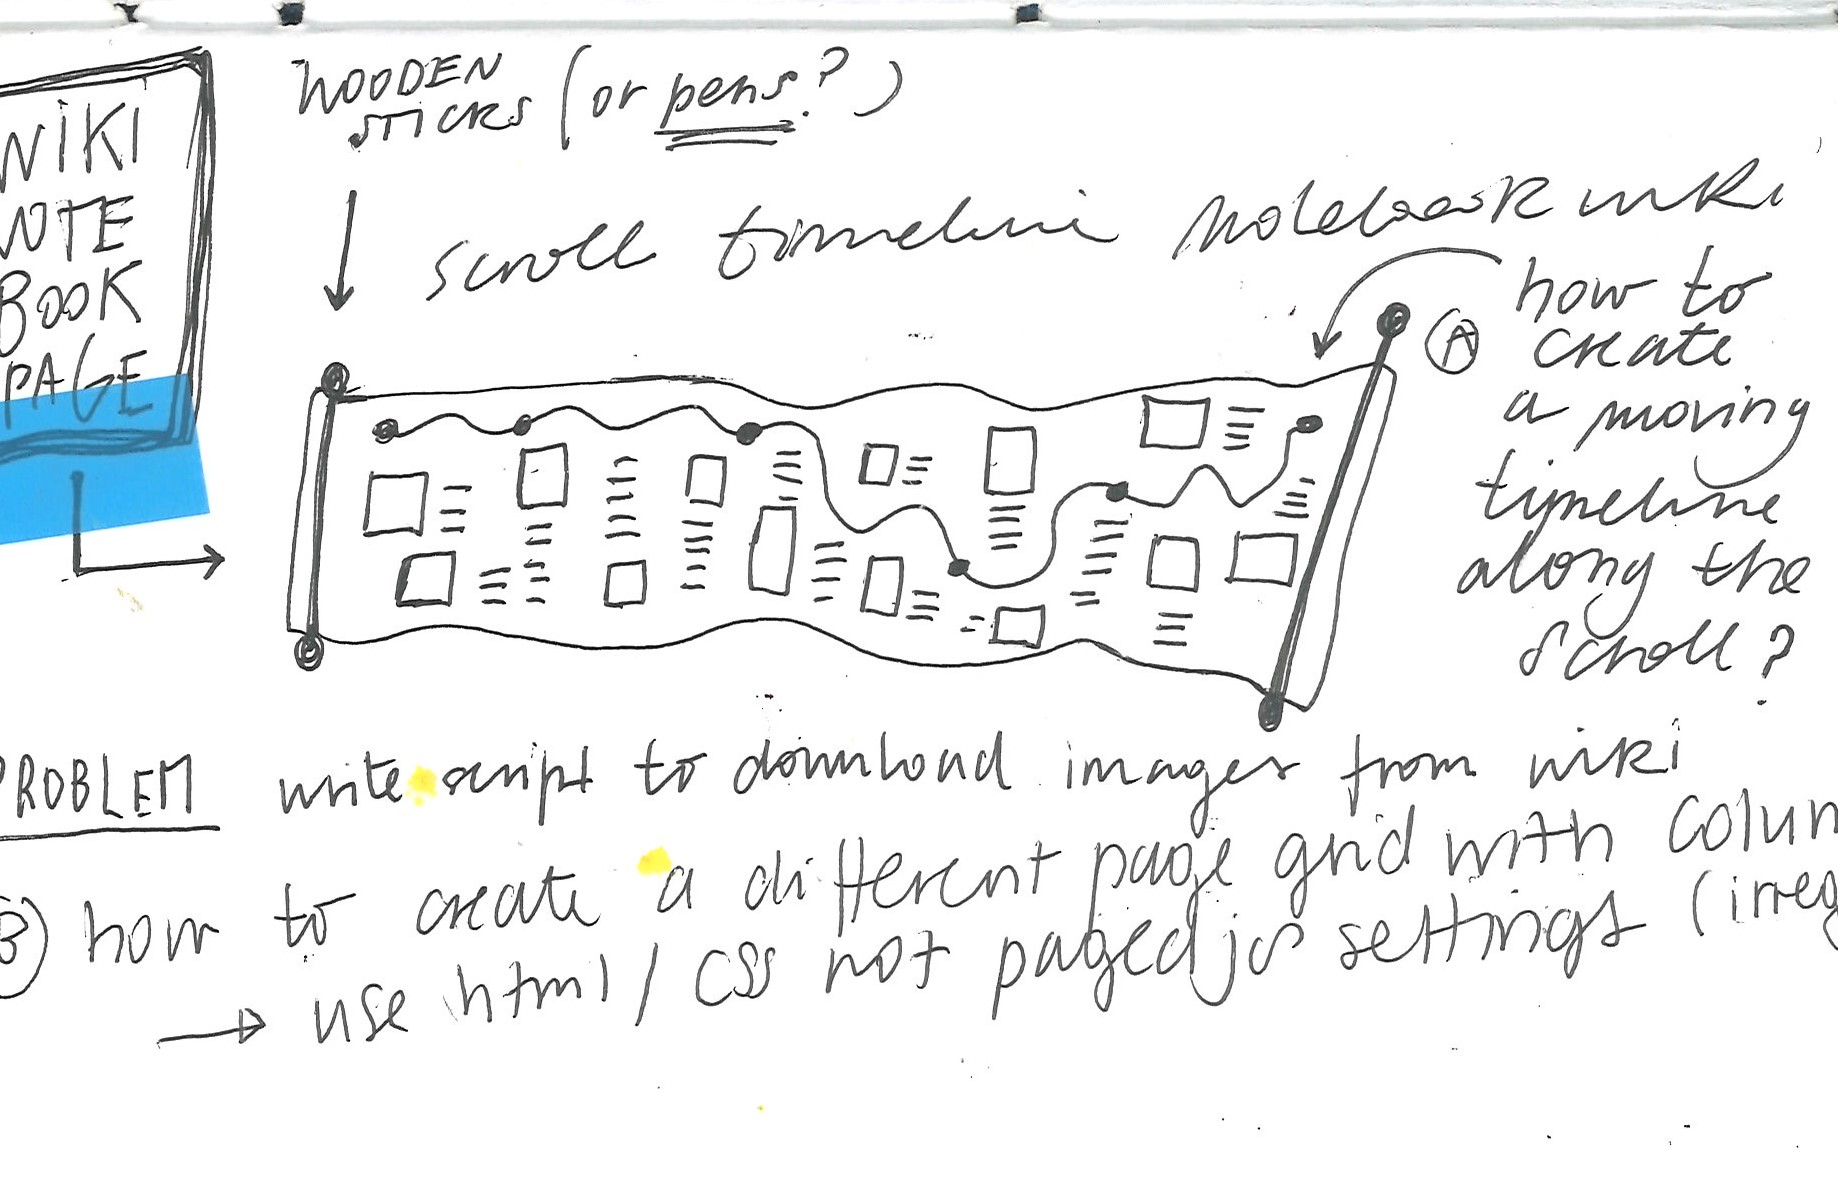 WIKI
NOTE
BOOK
PAGE
WOODEN
STICKS (or pens?)
scroll timeline notebook wiki
Ⓐ how to
create
a moving
timeline
along the
scroll?
PROBLEM write script to download images from wiki
Ⓑ how to create a different page grid with colum
→ use html/CSS not pagedjs settings (irreg